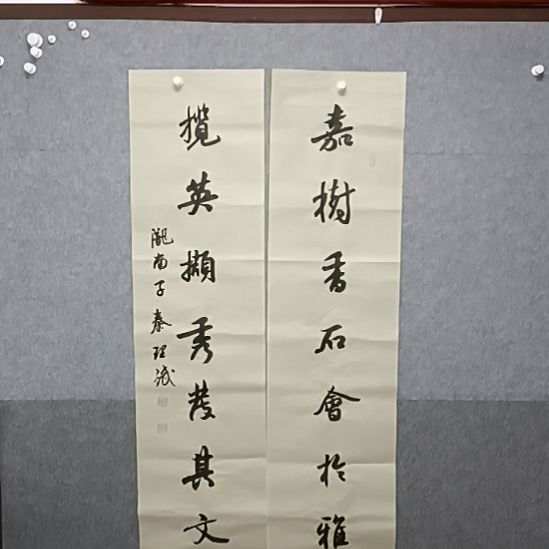 嘉樹香石會於雅
攬英擷秀發其文
隴南子秦理斌